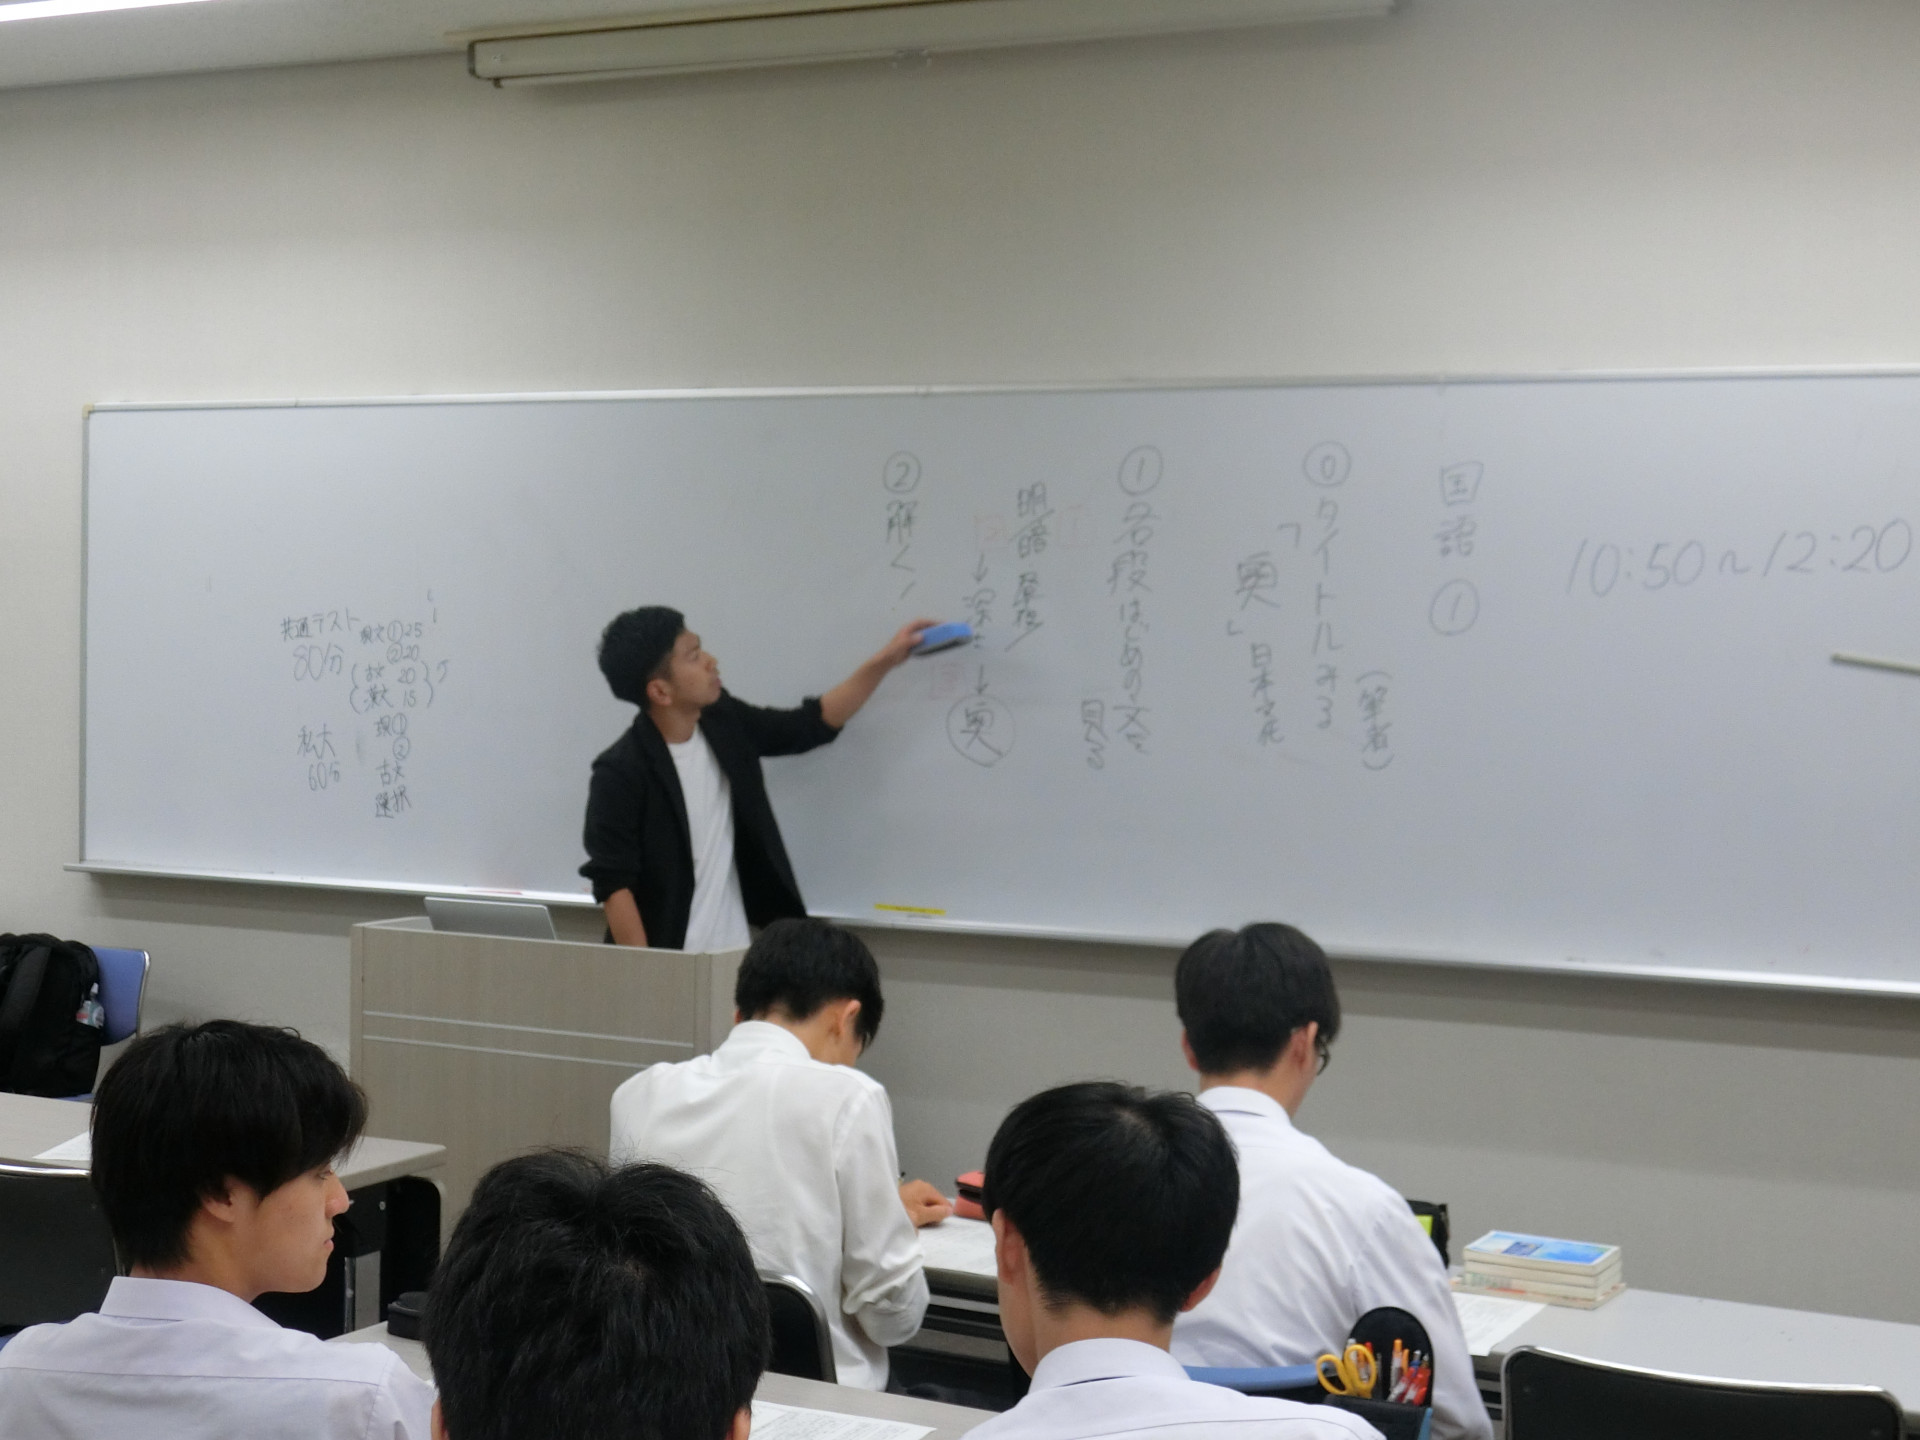 10:50~12:20
国語①
⓪タイトルみる
(筆者)
「奥」
①各段はじめの文を
見る
明暗 昼夜
→深さ→奥
②解く!
共通テスト
80分
現文①25
②20
古文 20
漢文 15
私大
60分
現①
②
古文
選択